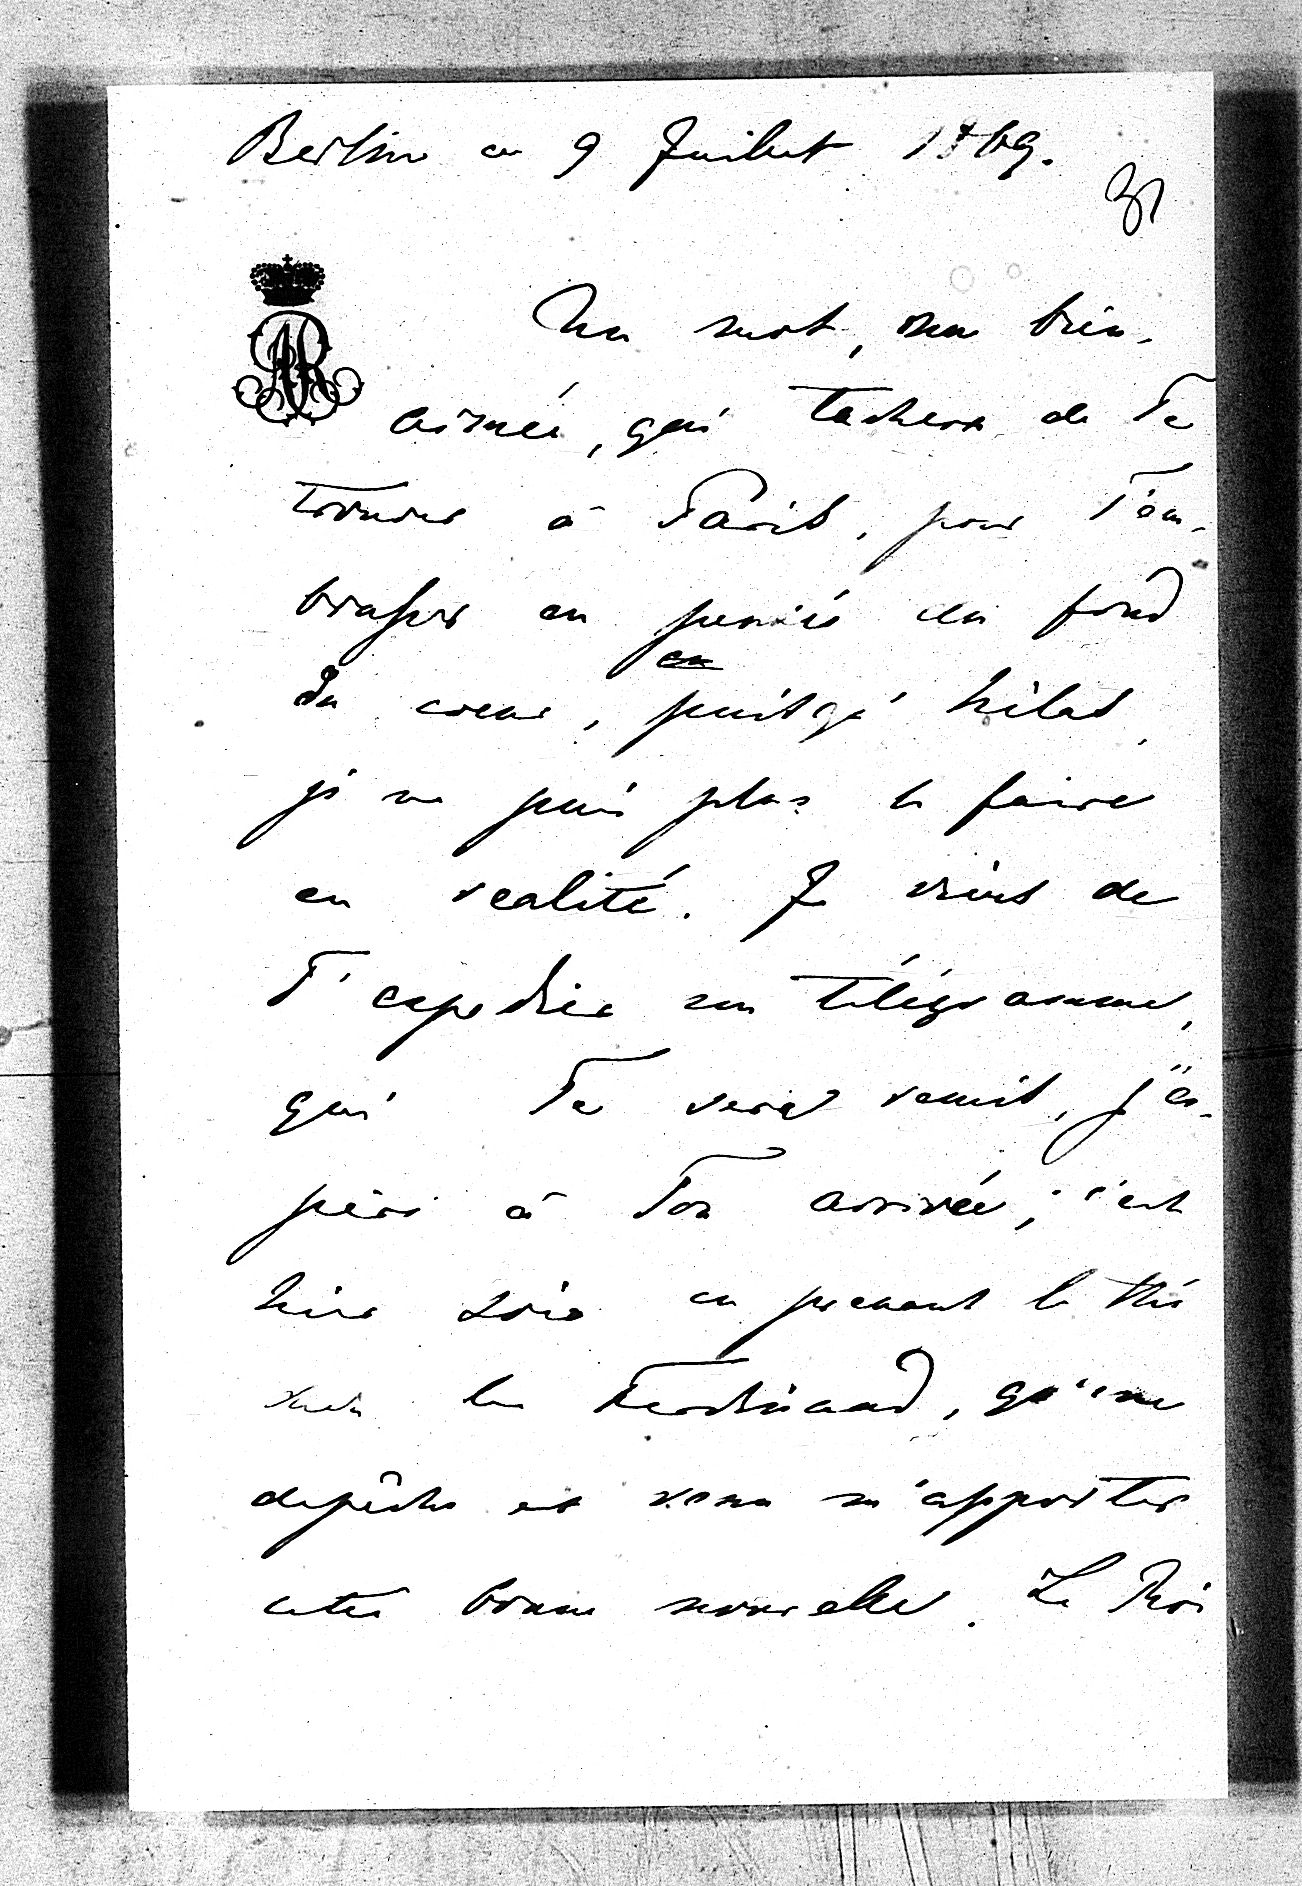 Berlin ce 9 Juillet 1869.
31
AR
Un mot, ma bien-
aimée, qui tachera de Te
trouver à Paris, pour T'em-
brasser en pensée du fond
du coeur, puisqu' hélas,
je ne puis plus le faire
en realité. Je viens de
T'expedier un télégramme,
qui Te sera remis, j'es-
père à Ton arrivée; c'est
hier soir en prenant le thé
chez les Ferdinand, qu'une
depêche est venu m'apporter
cette bonne nouvelle. Le Roi